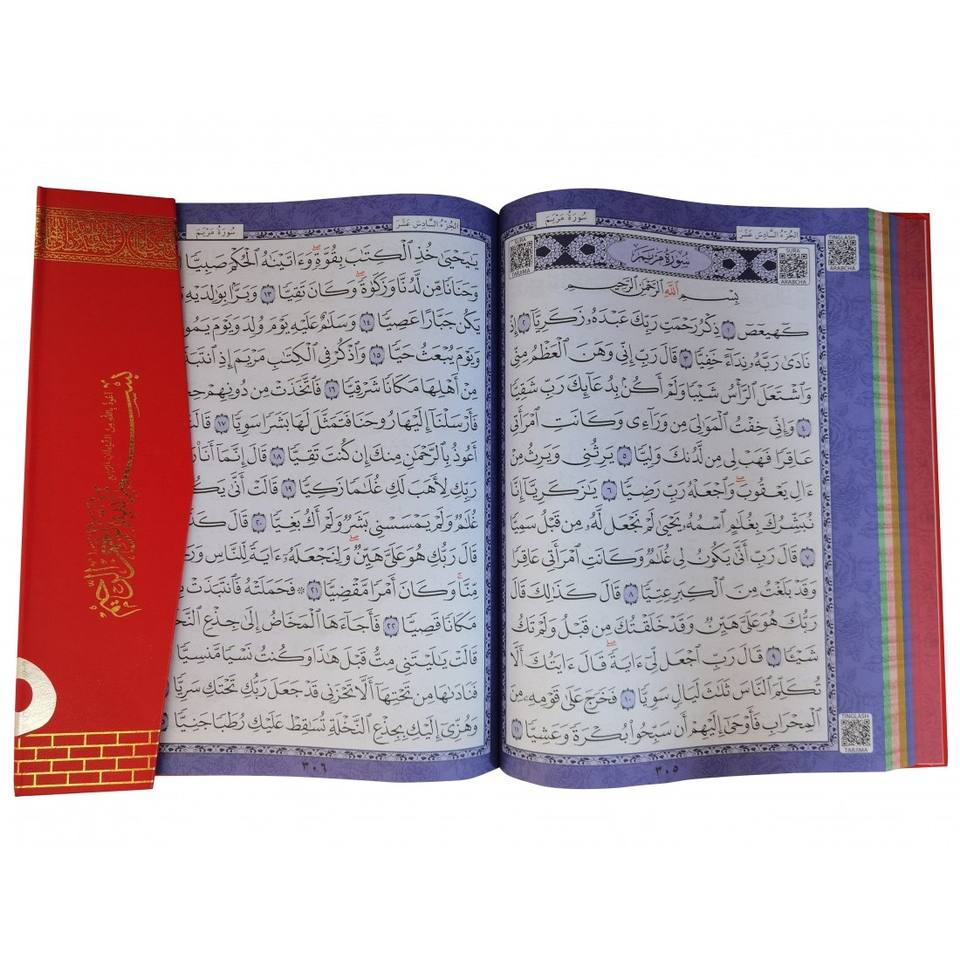 سُورَةُ مَرْيَمَ
الجُزْءُ السَّادِسَ عَشَرَ
TINGLASH
ARABCHA
SURA
TARJIMA
سُورَةُ مَرْيَمَ
SURA
ARABCHA
بِسْمِ ٱللَّهِ ٱلرَّحْمَٰنِ ٱلرَّحِيمِ
كٓهيعٓصٓ ١ ذِكْرُ رَحْمَتِ رَبِّكَ عَبْدَهُۥ زَكَرِيَّآ ٢ إِذْ
نَادَىٰ رَبَّهُۥ نِدَآءً خَفِيًّا ٣ قَالَ رَبِّ إِنِّى وَهَنَ ٱلْعَظْمُ مِنِّى
وَٱشْتَعَلَ ٱلرَّأْسُ شَيْبًا وَلَمْ أَكُنۢ بِدُعَآئِكَ رَبِّ شَقِيًّا
٤ وَإِنِّى خِفْتُ ٱلْمَوَٰلِىَ مِن وَرَآءِى وَكَانَتِ ٱمْرَأَتِى
عَاقِرًا فَهَبْ لِى مِن لَّدُنكَ وَلِيًّا ٥ يَرِثُنِى وَيَرِثُ مِنْ
ءَالِ يَعْقُوبَ ۖ وَٱجْعَلْهُ رَبِّ رَضِيًّا ٦ يَٰزَكَرِيَّآ إِنَّا
نُبَشِّرُكَ بِغُلَٰمٍ ٱسْمُهُۥ يَحْيَىٰ لَمْ نَجْعَل لَّهُۥ مِن قَبْلُ سَمِيًّا
٧ قَالَ رَبِّ أَنَّىٰ يَكُونُ لِى غُلَٰمٌ وَكَانَتِ ٱمْرَأَتِى عَاقِرًا
وَقَدْ بَلَغْتُ مِنَ ٱلْكِبَرِ عِتِيًّا ٨ قَالَ كَذَٰلِكَ قَالَ
رَبُّكَ هُوَ عَلَىَّ هَيِّنٌ وَقَدْ خَلَقْتُكَ مِن قَبْلُ وَلَمْ تَكُ
شَيْـًٔا ٩ قَالَ رَبِّ ٱجْعَل لِّىٓ ءَايَةً ۚ قَالَ ءَايَتُكَ أَلَّا
تُكَلِّمَ ٱلنَّاسَ ثَلَٰثَ لَيَالٍ سَوِيًّا ١٠ فَخَرَجَ عَلَىٰ قَوْمِهِۦ مِنَ
ٱلْمِحْرَابِ فَأَوْحَىٰٓ إِلَيْهِمْ أَن سَبِّحُوا۟ بُكْرَةً وَعَشِيًّا ١١
TINGLASH
TARJIMA
٣٠٥
الجُزْءُ السَّادِسَ عَشَرَ
سُورَةُ مَرْيَمَ
يَٰيَحْيَىٰ خُذِ ٱلْكِتَٰبَ بِقُوَّةٍ ۖ وَءَاتَيْنَٰهُ ٱلْحُكْمَ صَبِيًّا
وَحَنَانًا مِّن لَّدُنَّا وَزَكَوٰةً ۖ وَكَانَ تَقِيًّا ١٣ وَبَرًّۢا بِوَٰلِدَيْهِ
يَكُن جَبَّارًا عَصِيًّا ١٤ وَسَلَٰمٌ عَلَيْهِ يَوْمَ وُلِدَ وَيَوْمَ يَمُو
وَيَوْمَ يُبْعَثُ حَيًّا ١٥ وَٱذْكُرْ فِى ٱلْكِتَٰبِ مَرْيَمَ إِذِ ٱنتَبَذَ
مِنْ أَهْلِهَا مَكَانًا شَرْقِيًّا ١٦ فَٱتَّخَذَتْ مِن دُونِهِمْ
فَأَرْسَلْنَآ إِلَيْهَا رُوحَنَا فَتَمَثَّلَ لَهَا بَشَرًا سَوِيًّا ١٧ قَالَتْ
أَعُوذُ بِٱلرَّحْمَٰنِ مِنكَ إِن كُنتَ تَقِيًّا ١٨ قَالَ إِنَّمَآ أَنَا۠
رَبِّكِ لِأَهَبَ لَكِ غُلَٰمًا زَكِيًّا ١٩ قَالَتْ أَنَّىٰ يَكُ
غُلَٰمٌ وَلَمْ يَمْسَسْنِى بَشَرٌ وَلَمْ أَكُ بَغِيًّا ٢٠ قَالَ كَذَ
قَالَ رَبُّكِ هُوَ عَلَىَّ هَيِّنٌ ۖ وَلِنَجْعَلَهُۥٓ ءَايَةً لِّلنَّاسِ وَرَ
مِّنَّا ۚ وَكَانَ أَمْرًا مَّقْضِيًّا ٢١ ۞ فَحَمَلَتْهُ فَٱنتَبَذَتْ
مَكَانًا قَصِيًّا ٢٢ فَأَجَآءَهَا ٱلْمَخَاضُ إِلَىٰ جِذْعِ ٱلنَّخْ
قَالَتْ يَٰلَيْتَنِى مِتُّ قَبْلَ هَٰذَا وَكُنتُ نَسْيًا مَّنسِيًّا
فَنَادَىٰهَا مِن تَحْتِهَآ أَلَّا تَحْزَنِى قَدْ جَعَلَ رَبُّكِ تَحْتَكِ سَرِيًّا
وَهُزِّىٓ إِلَيْكِ بِجِذْعِ ٱلنَّخْلَةِ تُسَٰقِطْ عَلَيْكِ رُطَبًا جَنِيًّا
٣٠٦
أعوذ بالله من الشيطان الرجيم